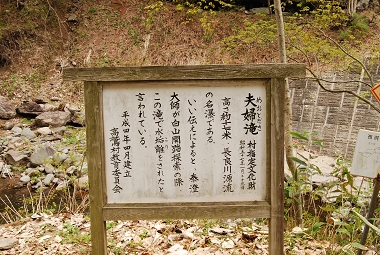 めおとだき
夫婦滝
村指定文化財
高さ約十七米 長良川源流
の名瀑である。
いい伝えによると 泰澄
大師が白山開路探索の際
この滝で水垢離をされたと
言われている。
平成四年四月建立
高鷲村教育委員会